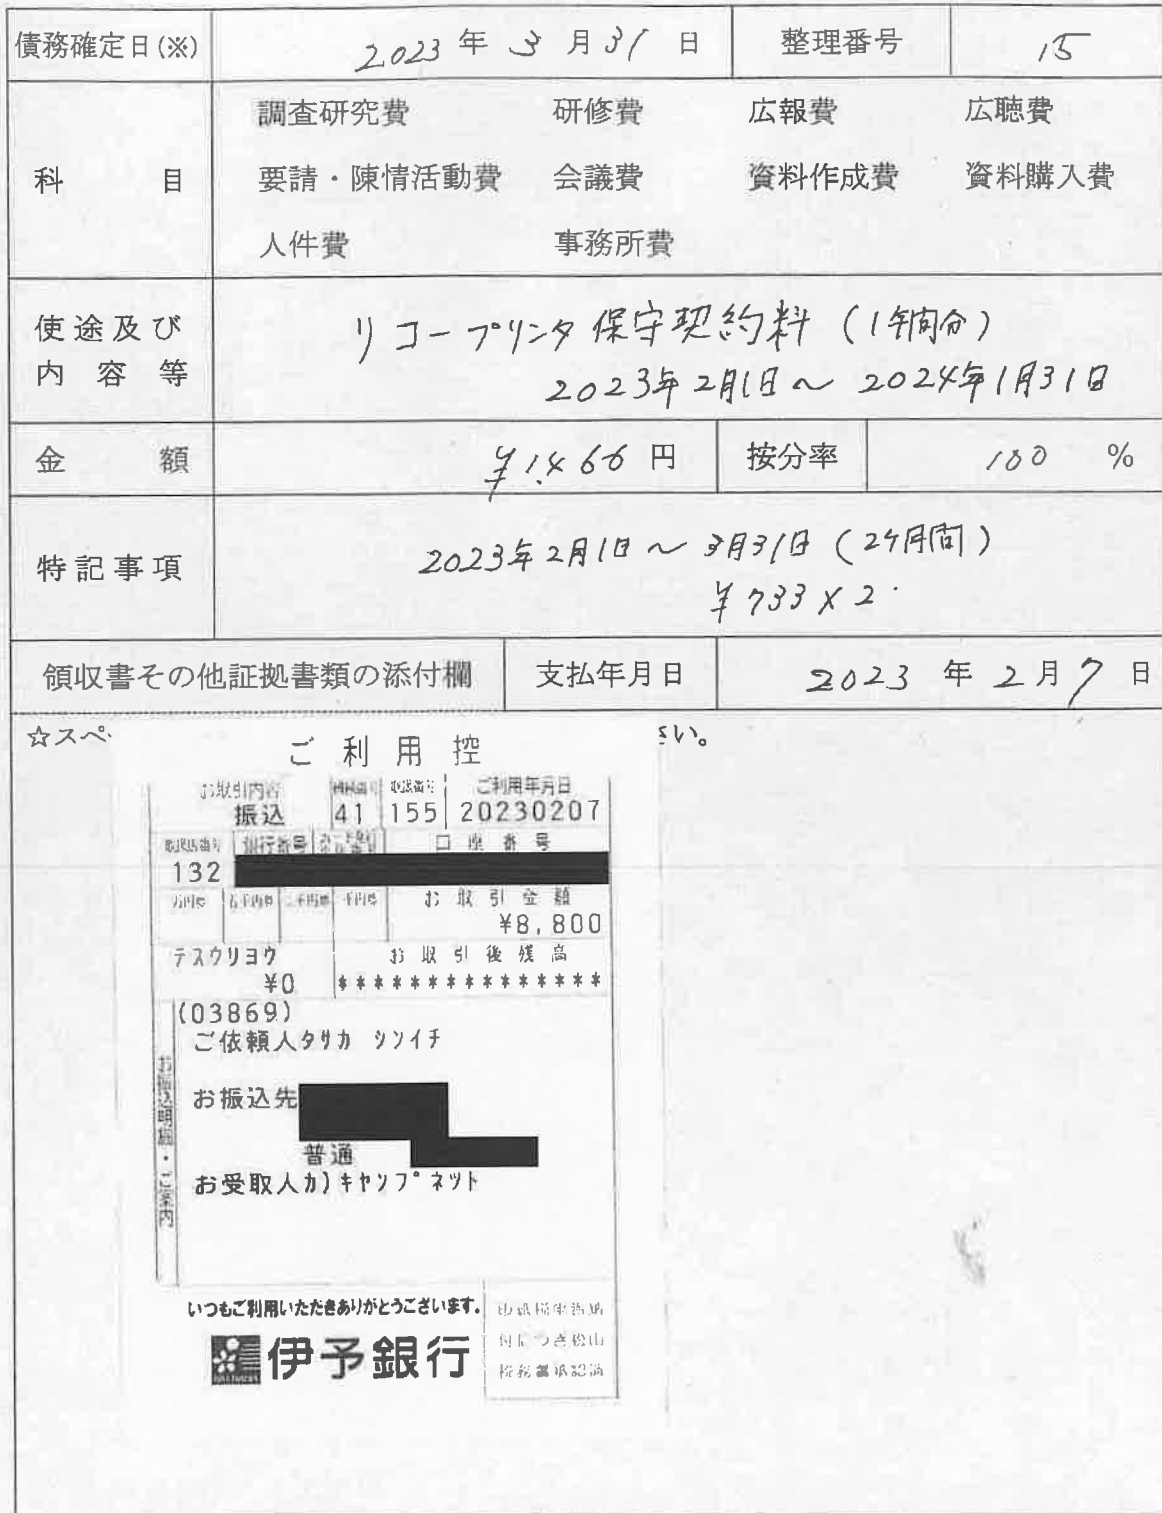 債務確定日(※) 2023 年 3 月 31 日 整理番号 15
科 目 調査研究費 研修費 広報費 広聴費
要請・陳情活動費 会議費 資料作成費 資料購入費
人件費 事務所費
使途及び内容等 リコープリンタ保守契約料(1年間分)
2023年2月1日~2024年1月31日
金 額 ¥1,466 円 按分率 100 %
特記事項 2023年2月1日~3月31日(2ヶ月間)
¥733×2
領収書その他証拠書類の添付欄 支払年月日 2023 年 2 月 7 日
☆スペ さい。
ご利用控
お取引内容 機械番号 取扱番号 ご利用年月日
振込 41 155 20230207
取扱店番号 銀行番号 口座番号
132
万円 五千円 二千円 千円 お取引金額
¥8,800
テスウリヨウ お取引後残高
¥0 ***************
(03869)
ご依頼人タサカ シンイチ
お振込明細・ご案内
お振込先
普通
お受取人カ)キヤンプネツト
いつもご利用いただきありがとうございます。
伊予銀行
印紙税申告納
付につき松山
税務署承認済